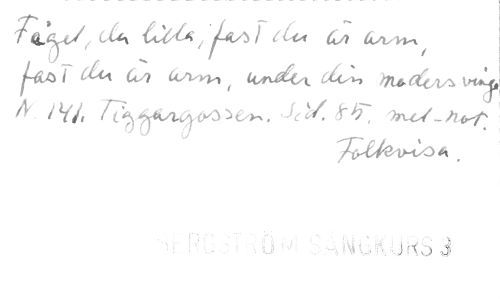 Fågel, du lilla, fast du är arm,
fast du är arm, under din moders vinge
N. 141. Tiggargossen. Sid. 85. mel-not.
Folkvisa.
BERGSTRÖM SÅNGKURS 3